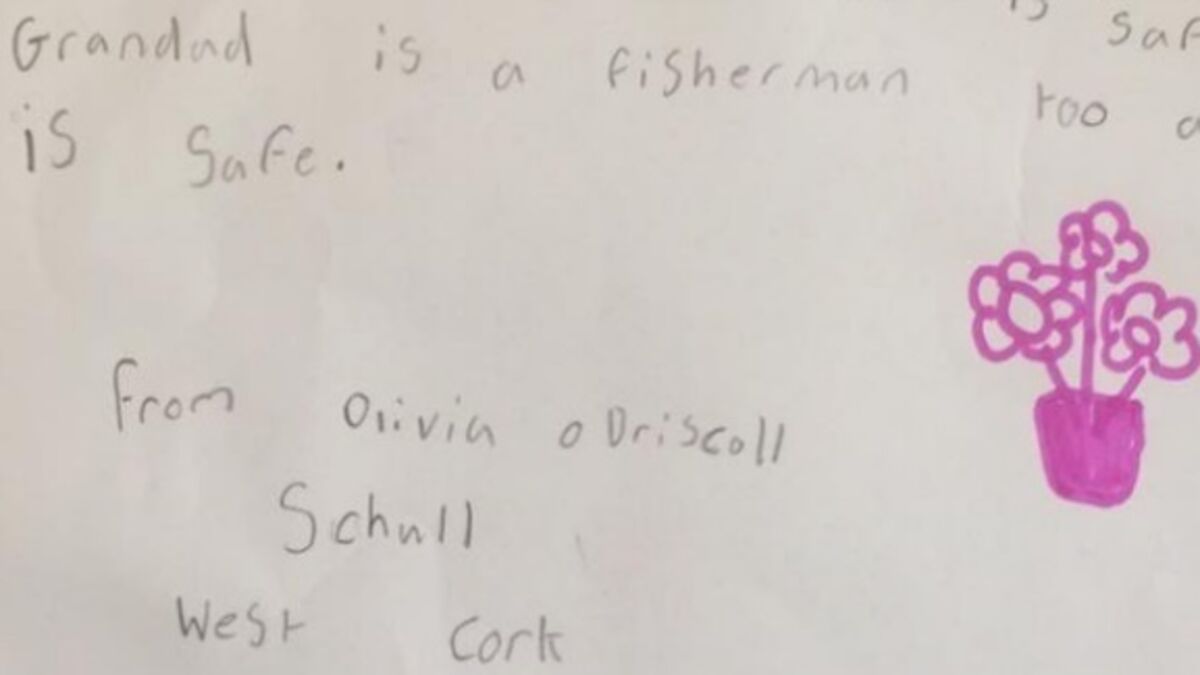 Grandad is a fisherman
is safe.
is
too
From Olivia o Driscoll
Schull
West Cork